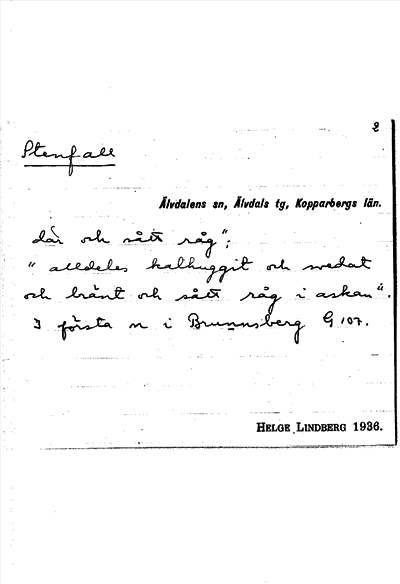 2
Stenfall
Älvdalens sn, Älvdals tg, Kopparbergs län.
där och sått råg";
" alldeles kalhuggit och svedat
och bränt och sått råg i askan".
I första n i Brunnsberg G 107.
HELGE LINDBERG 1936.